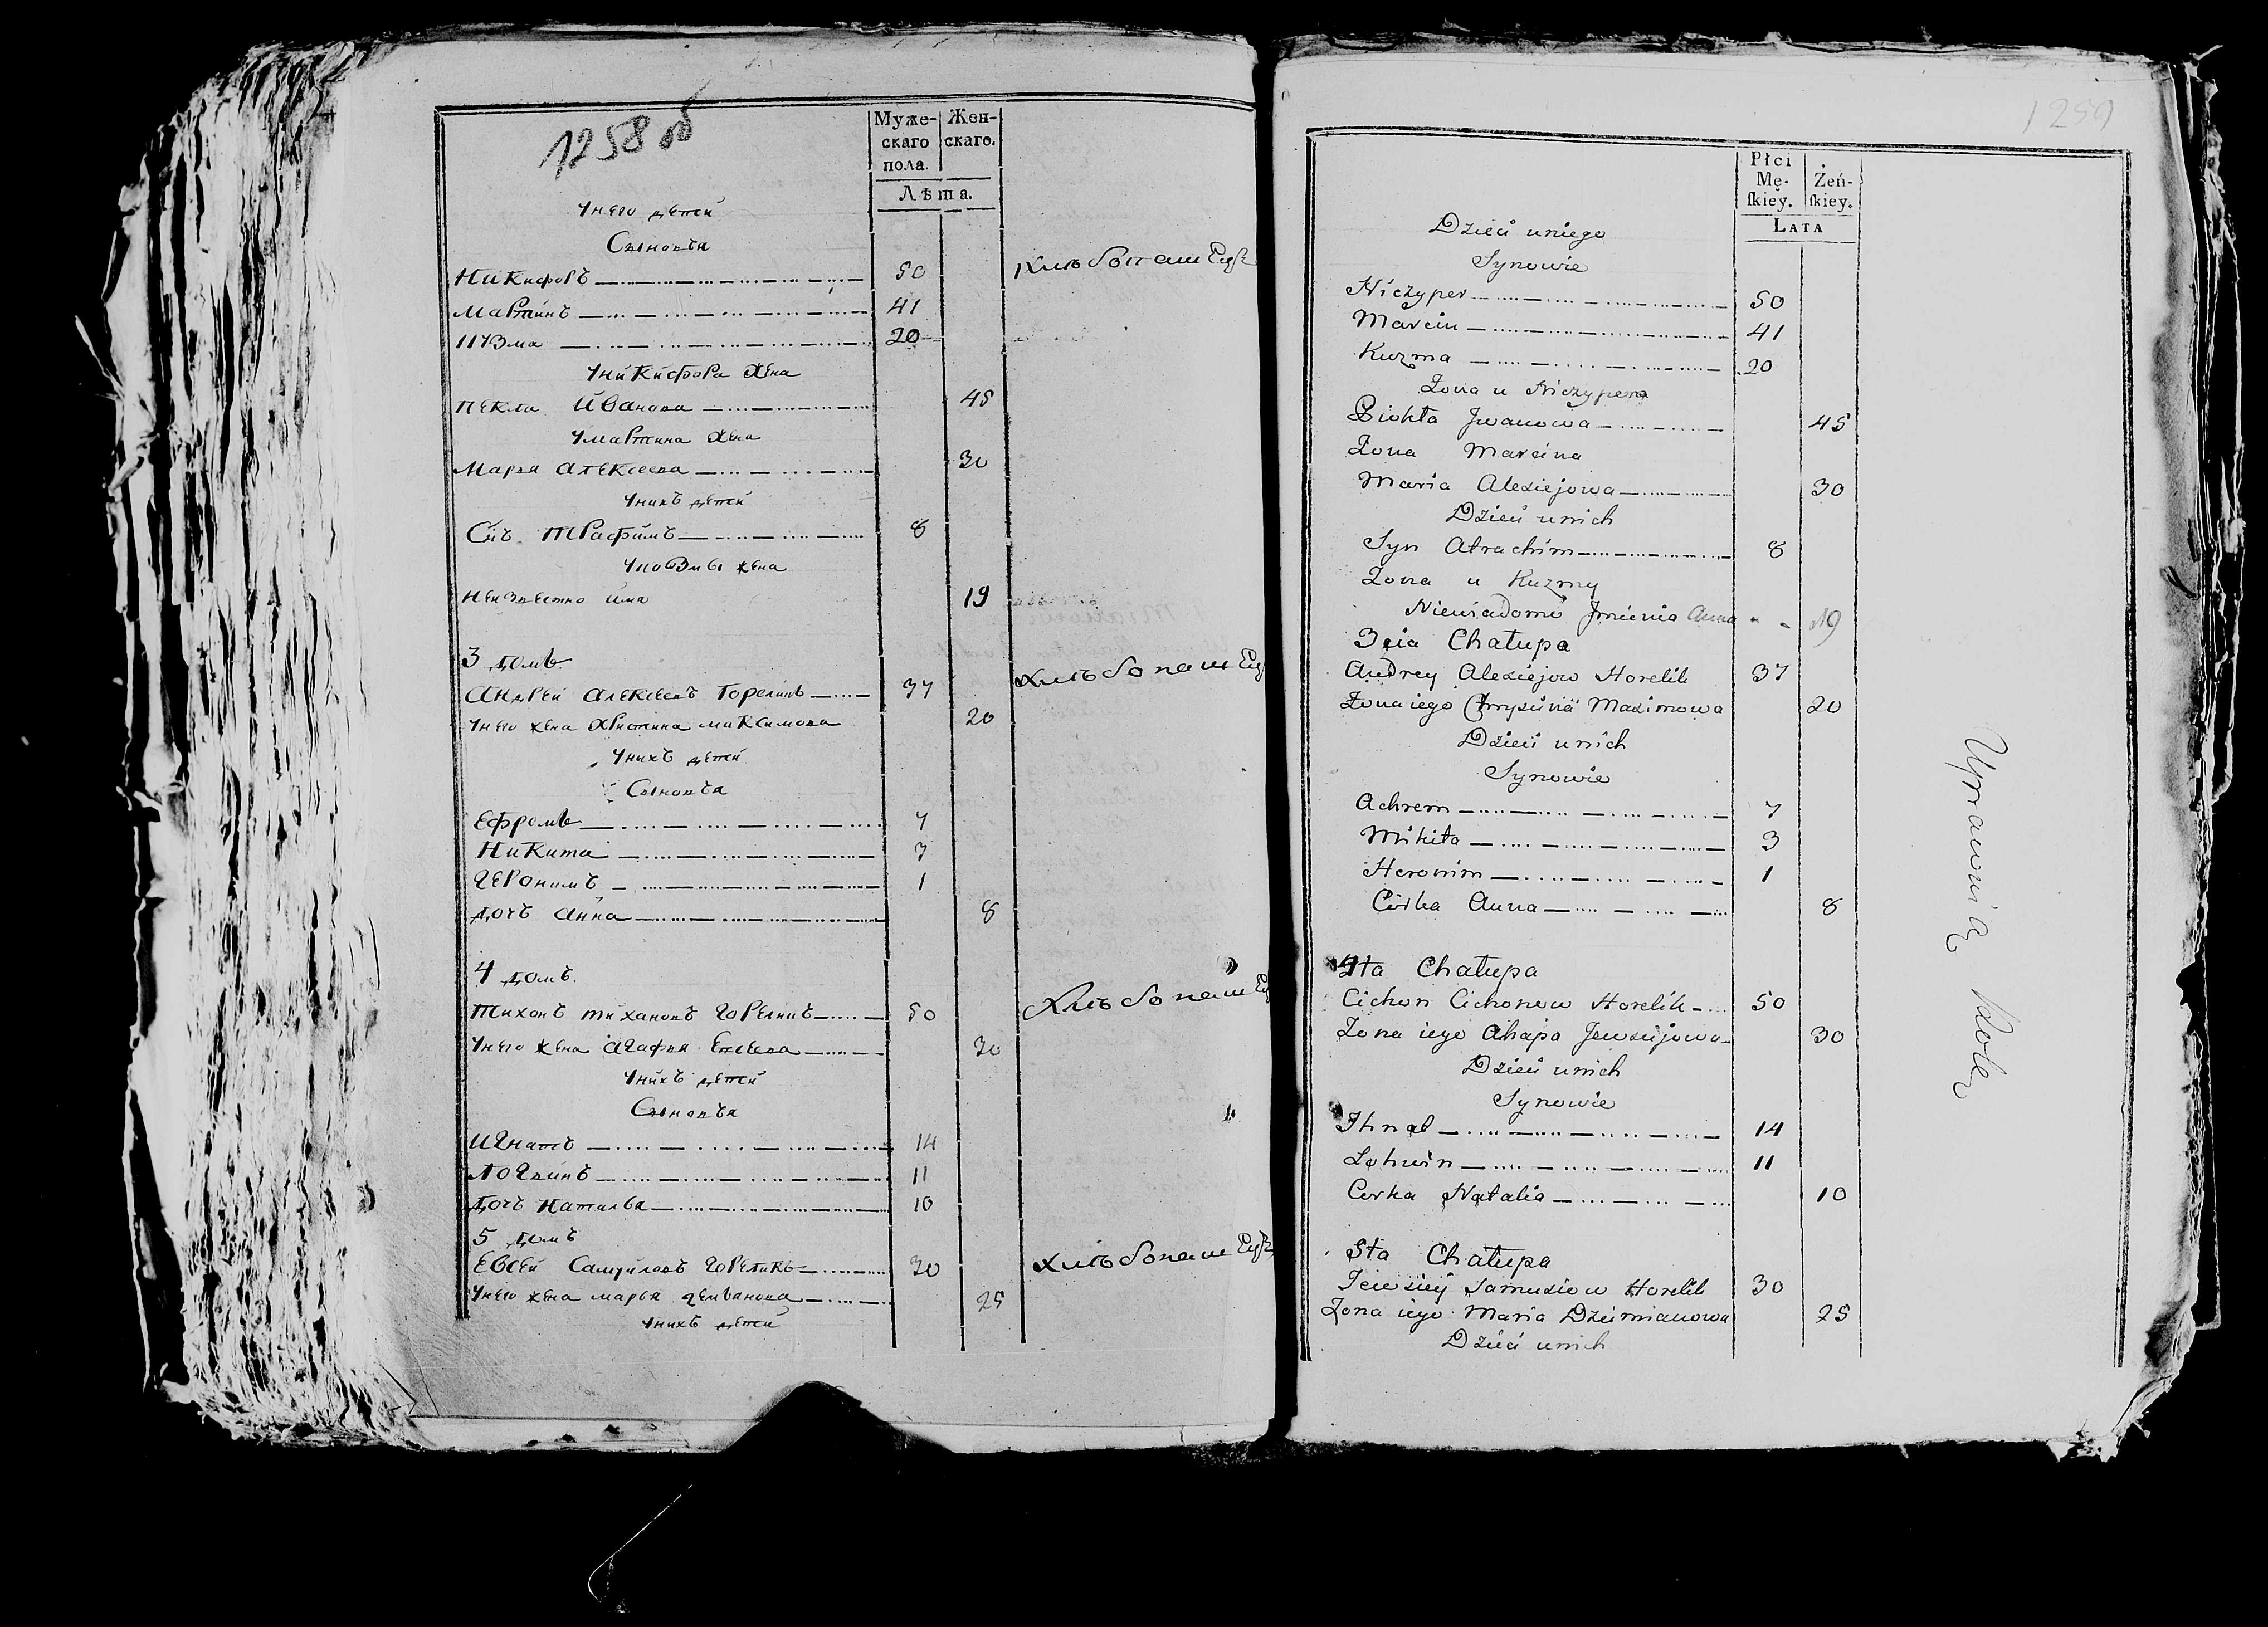 1258 об
Муже-
скаго
пола.
Жен-
скаго.
Лѣта.
У него детей
Сыновья
Никифоръ 50
Мартинъ 41
Кузма 20
У Никифора жена
Пекла Иванова 45
У Мартина жена
Марья Алексеева 30
У нихъ детей
Снъ Трафимъ 8
У Козмы жена
Неизвестно има 19
3 домъ
Андрей Алексеевъ Гореликъ 37
У него жена Христина Максимова 20
У нихъ детей
Сыновья
Ефремъ 7
Никита 3
Геронимъ 1
Дочь Анна 8
4 домъ
Тихонъ Тихановъ Гореликъ 50
У него жена Агафья Евсеева 30
У нихъ детей
Сыновья
Игнатъ 14
Логвинъ 11
Дочь Наталья 10
5 домъ
Евсей Самуйловъ Гореликъ 30
У него жена Марья Демьянова 25
У нихъ детей
1259
Płci
Mę-
ſkiey.
Żeń-
ſkiey.
Lata
Dzieci u niego
Synowie
Niczyper 50
Marcin 41
Kuzma 20
Żona u Niczypera
Piokła Jwanowa 45
Żona Marcina
Maria Alexiejowa 30
Dzieci u nich
Syn Atrachim 8
Żona u Kuzmy
Niewiadomo Jmienia Anna 19
3cia Chałupa
Andrey Alexiejow Horelik 37
Żona iego Chrysżina Maximowa 20
Dzieci u nich
Synowie
Achrem 7
Mikita 3
Heronim 1
Córka Anna 8
4ta Chałupa
Cichon Cichonow Horelik 50
Żona iego Ahapa Jewsiejowa 30
Dzieci u nich
Synowie
Ihnat 14
Łohwin 11
Corka Natalia 10
5ta Chałupa
Jewsiej Samusiow Horelik 30
Żona iego Maria Dziemianowa 25
Dzieci u nich
Uprawnią Rolę